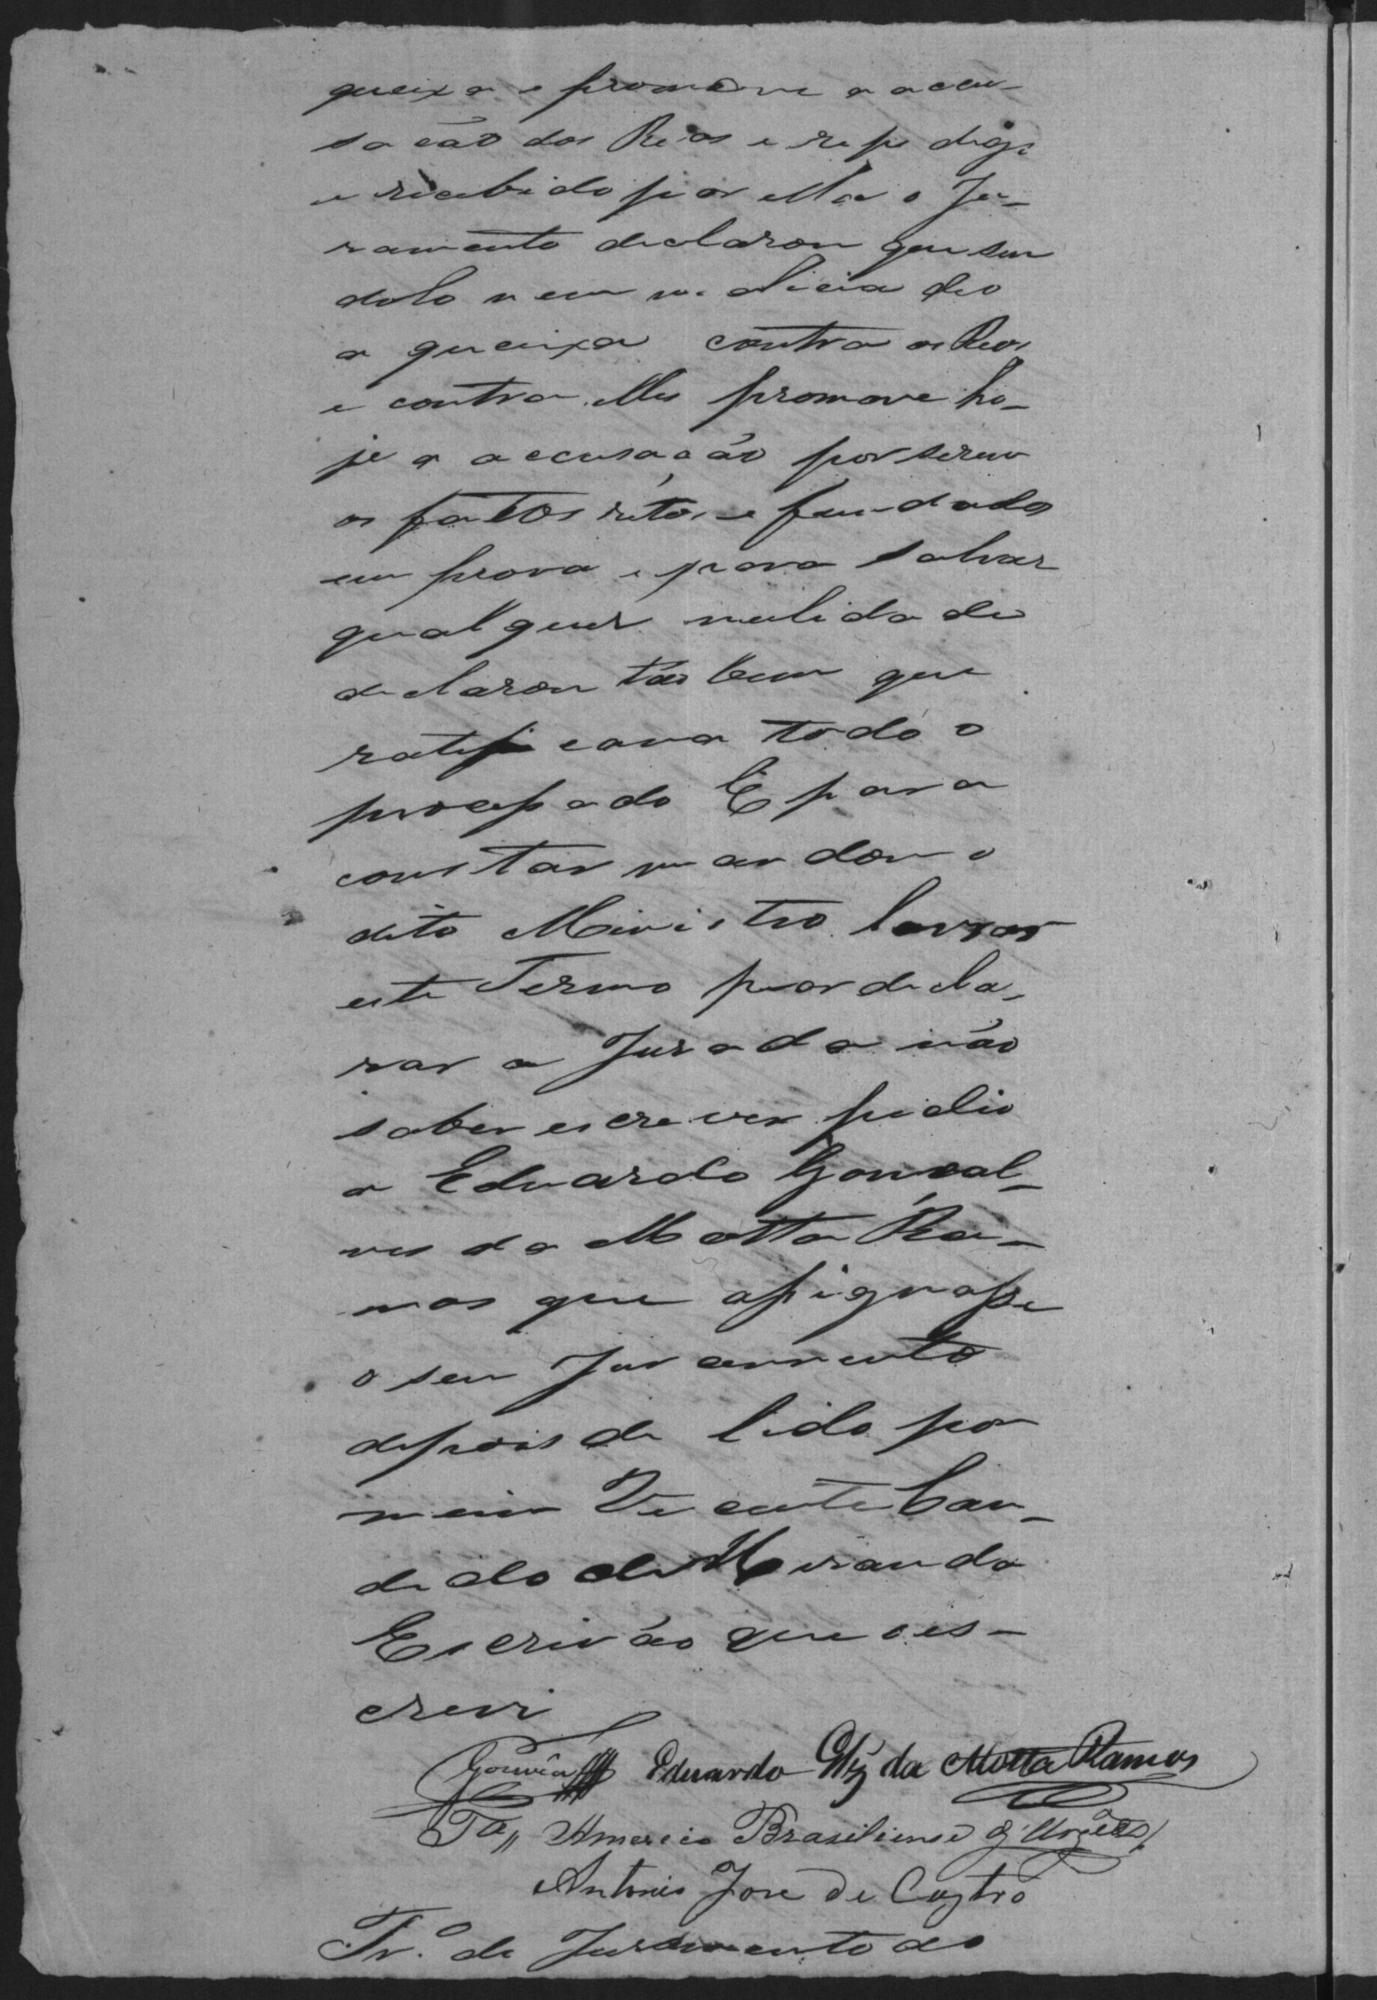 queixa e promove a accu-
sacão dos Reos e
e recebido por ella o Ju-
ramento declarou que sem
dolo nem malicia deo
a queixa contra os Reos
e contra elles promove ho-
je a accusacão por serem
os factos e fundados
em prova e para salvar
qualquer nulidade
declarou tão bem que
ratificava todo o
processado E para
constar mandou o
dito Ministro lavrar
este Termo por decla-
rar a Jurada não
saber escrever pedio
a Eduardo Goncal-
ves da Motta Ra-
mos que assignasse
o seu Juramento
depois de lido por
mim Vicente Can-
dido de Miranda
Escrivão que o es-
crevi
Gouvêa Eduardo Glz da Motta Ramos
Brasiliense
Antonio Jose de Castro
Tr.º de Juramento ao